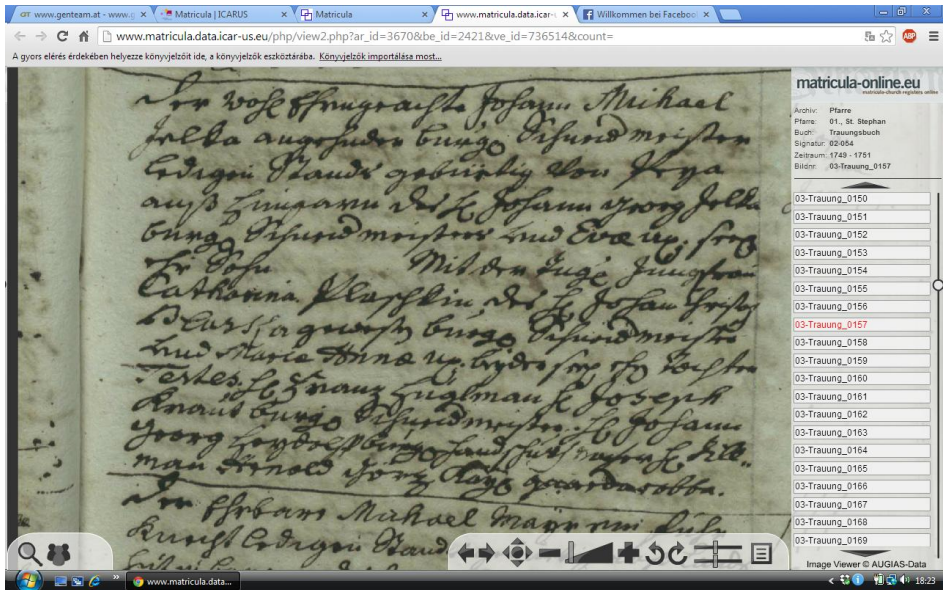 www.genteam.at - www.g
Matricula | ICARUS
Matricula
www.matricula.data.icar-u
Willkommen bei Faceboo
www.matricula.data.icar-us.eu/php/view2.php?ar_id=3670&be_id=2421&ve_id=736514&count=
ABP
A gyors elérés érdekében helyezze könyvjelzőit ide, a könyvjelzők eszköztárába. Könyvjelzők importálása most...
Der Wohl Ehrngeachte Johann Michael
Jelka angehender burgl Schneidmeister
Ledigen Stands gebürtig Von
auß Hungarn des H Johann Georg Jelka
burgl Schneidmeisters und Evae ux,
Ehr Sohn Mit der Jungfrau
Catharina Plaschkin des H Johann
gewesten burgl Schneidmeister
und Maria Anna ux. beyder Tochter
Testes. H Franz H Joseph
Kraus burgl Schneidmeister. H Johann
Georg burgl H
man
Der Ehrbare Michael Mayr ein
Knecht Ledigen Stands
matricula-online.eu
matricula-church registers online
Archiv: Pfarre
Pfarre: 01., St. Stephan
Buch: Trauungsbuch
Signatur: 02-054
Zeitraum: 1749 - 1751
Bildnr. 03-Trauung_0157
03-Trauung_0150
03-Trauung_0151
03-Trauung_0152
03-Trauung_0153
03-Trauung_0154
03-Trauung_0155
03-Trauung_0156
03-Trauung_0157
03-Trauung_0158
03-Trauung_0159
03-Trauung_0160
03-Trauung_0161
03-Trauung_0162
03-Trauung_0163
03-Trauung_0164
03-Trauung_0165
03-Trauung_0166
03-Trauung_0167
03-Trauung_0168
03-Trauung_0169
Image Viewer © AUGIAS-Data
www.matricula.data...
18:23